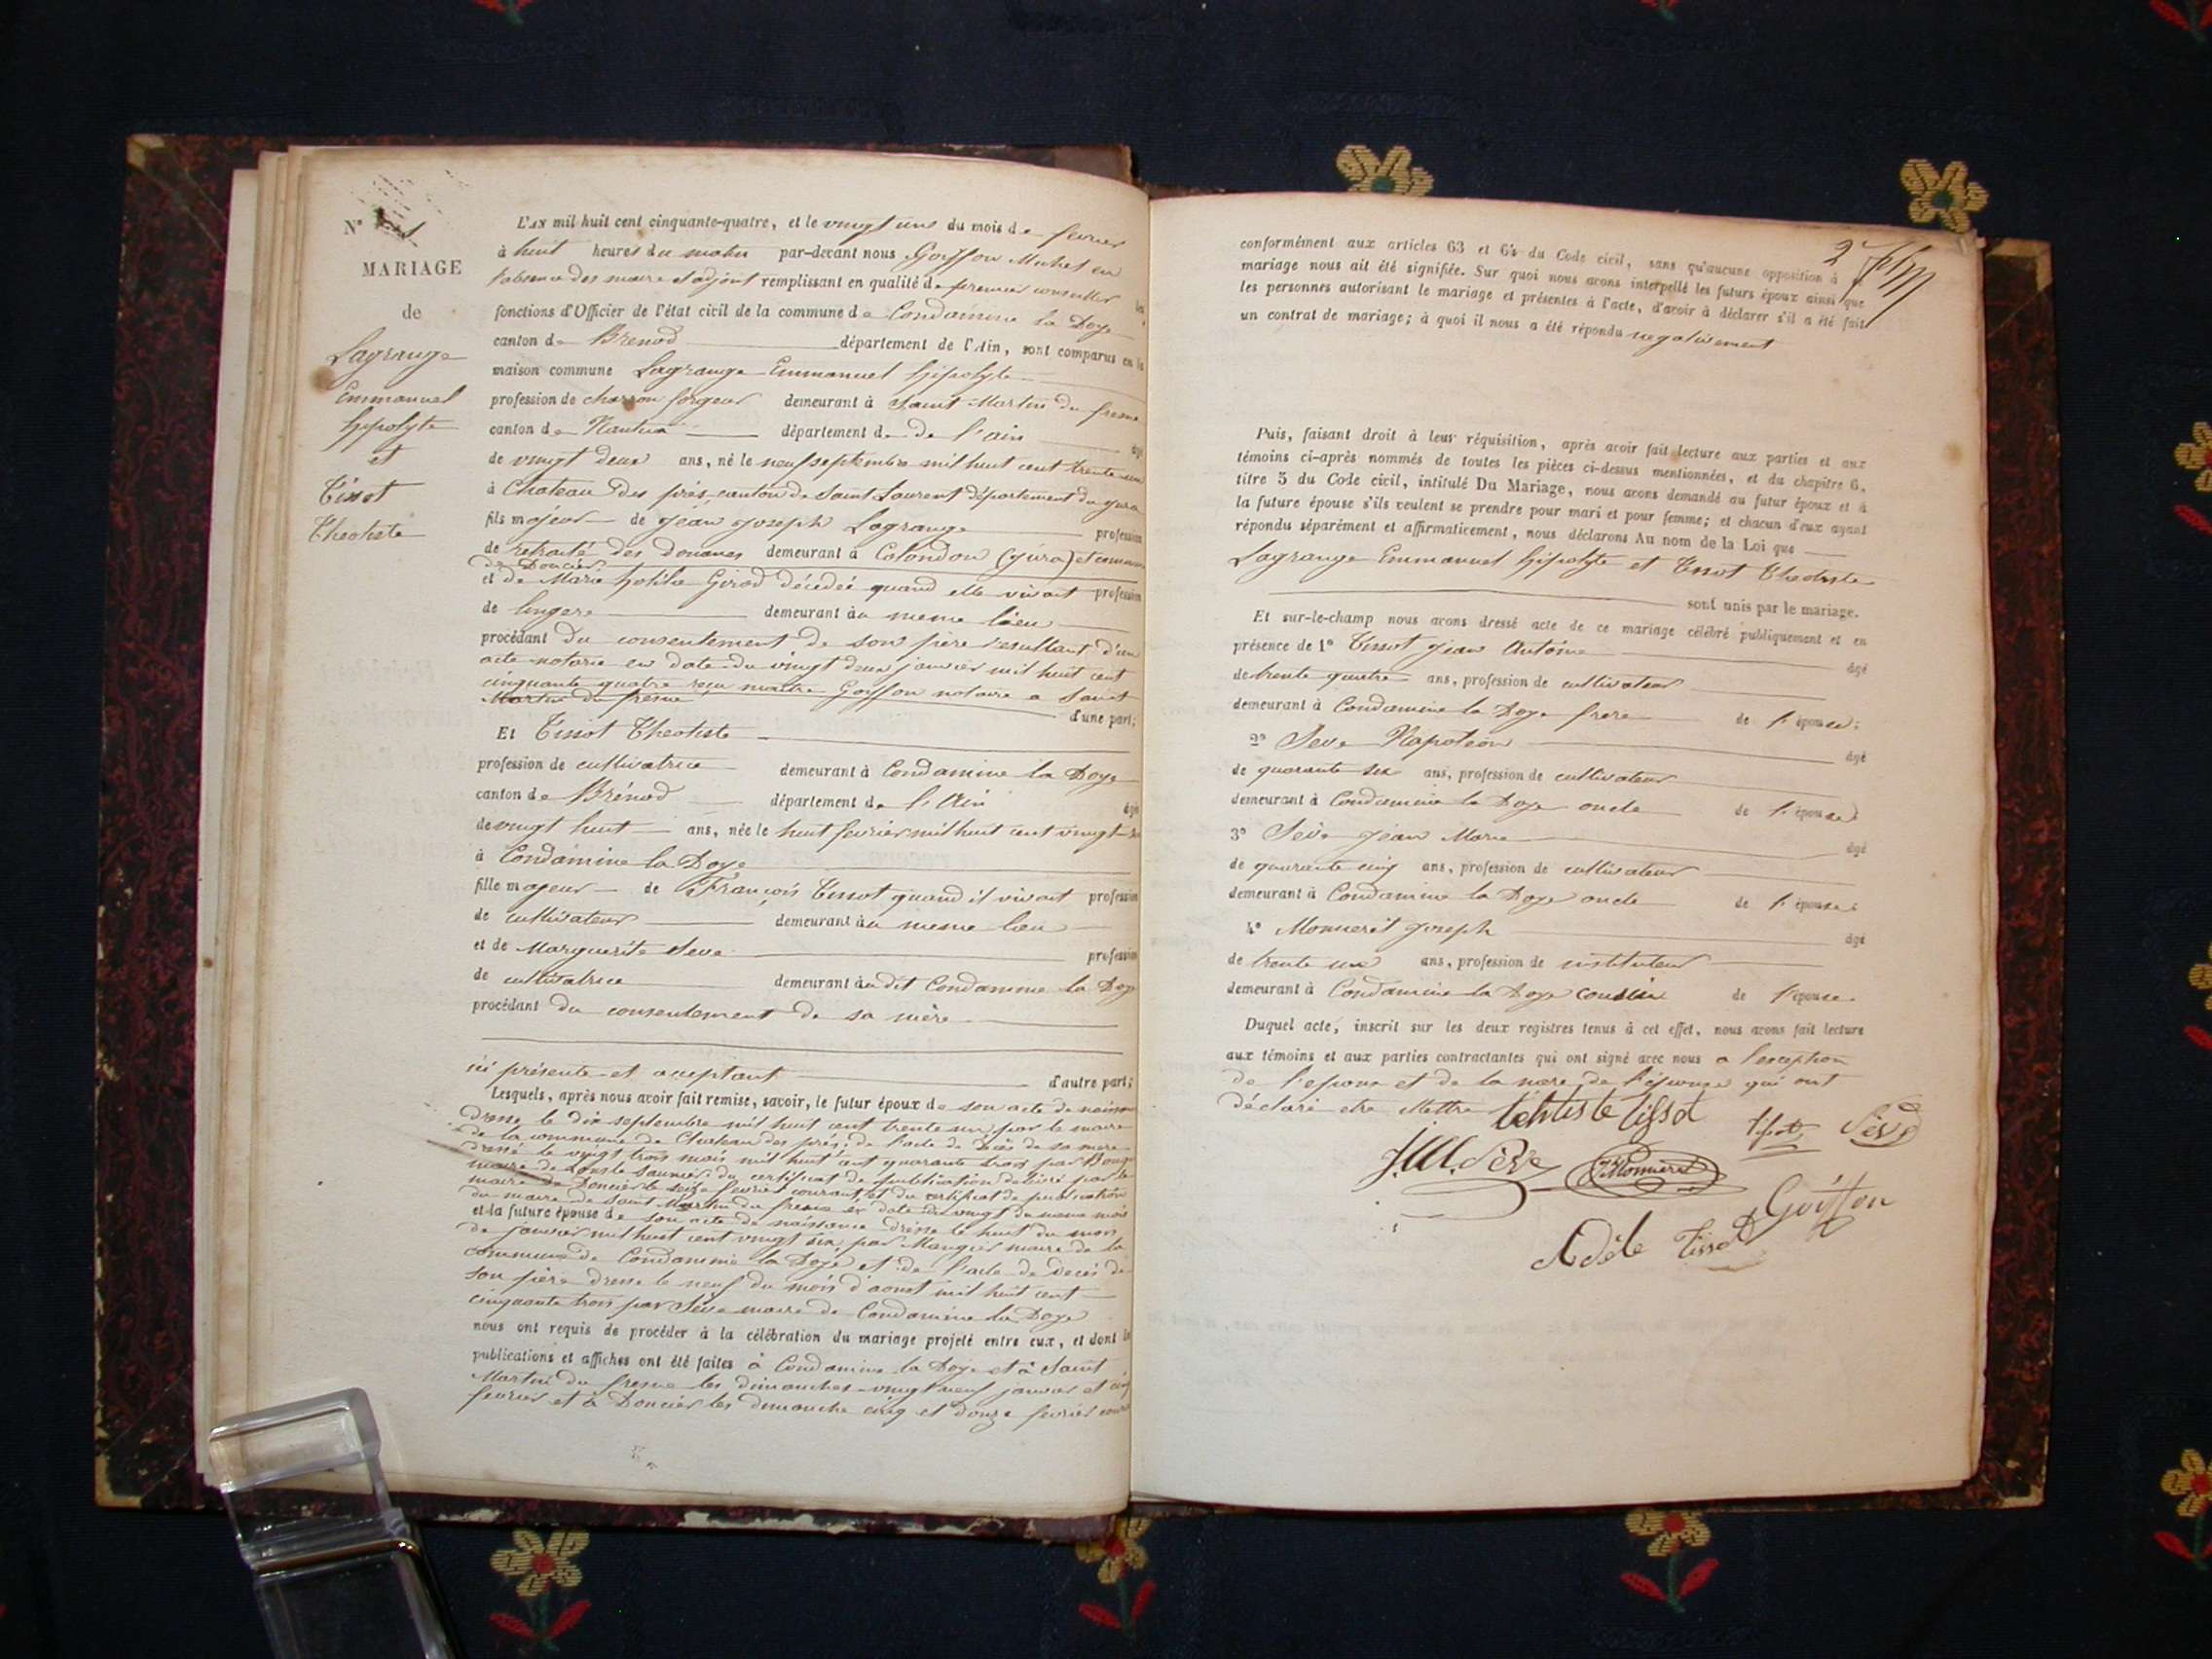 N°
MARIAGE
de
Lagrange
Emmanuel
hypolyte
et
Tissot
Theotiste
L'AN mil huit cent cinquante-quatre, et le vingt un du mois de fevrier
à huit heures du matin par-devant nous Goyffon Michel en
l'absence des maire et adjoint remplissant en qualité de premier conseiller les
fonctions d'Officier de l'état civil de la commune de Condamine la Doye
canton de Brenod département de l'Ain, sont comparus en la
maison commune Lagrange Emmanuel hipolyte
profession de charron forgeur demeurant à Saint Martin du fresne
canton de Nantua département de de l'ain âgé
de vingt deux ans, né le neuf septembre mil huit cent trente un
à Chateau des prés canton de Saint Laurent département du jura
fils majeur de jean joseph Lagrange profession
de retraité des Douanes demeurant à Colondon (jura) et commune
de Doucier
et de Marie Girod décédée quand elle vivait profession
de lingere demeurant au meme lieu
procédant du consentement de son père resultant d'un
acte notarié en date du vingt deux janvier mil huit cent
cinquante quatre reçu maitre Goyffon notaire a Saint
Martin du fresne d'une part;
Et Tissot Theotiste
profession de cultivatrice demeurant à Condamine la Doye
canton de Brénod département de l'Ain âgé
de vingt huit ans, née le huit fevrier mil huit cent vingt six
à Condamine la Doye
fille majeur de François Tissot quand il vivait profession
de cultivateur demeurant au meme lieu
et de Marguerite Seve profession
de cultivatrice demeurant audit Condamine la Doye
procédant du consentement de sa mère
ici présente et aceptant d'autre part;
Lesquels, après nous avoir fait remise, savoir, le futur époux de son acte de naissance
dresse le dix septembre mil huit cent trente un par le maire
de la commune de Chateau des prés, de l'acte de décès de sa mere
dressé le vingt trois mars mil huit cent quarante trois par
maire de Lons le Saunier, du certificat de publication delivré par le
maire de Doucier le seize fevrier courant, et du certificat de publication
du maire de Saint Martin du fresne en date du vingt du meme mois
et la future épouse de son acte de naissance dresse le huit du mois
de janvier mil huit cent vingt six par Maugier maire de la
commune de Condamine la Doye et de l'acte de decés de
son père dresse le neuf du mois d'aout mil huit cent
cinquante trois par Sève maire de Condamine la Doye
nous ont requis de procéder à la célébration du mariage projeté entre eux, et dont les
publications et affiches ont été faites à Condamine la Doye et à Saint
Martin du fresne les dimanches vingt neuf janvier et cinq
fevrier et à Doucier les dimanche cinq et douze fevrier courant
2
conformément aux articles 63 et 64 du Code civil, sans qu'aucune opposition à ce
mariage nous ait été signifiée. Sur quoi nous avons interpellé les futurs époux ainsi que
les personnes autorisant le mariage et présentes à l'acte, d'avoir à déclarer s'il a été fait
un contrat de mariage; à quoi il nous a été répondu negativement
Puis, faisant droit à leur réquisition, après avoir fait lecture aux parties et aux
témoins ci-après nommés de toutes les pièces ci-dessus mentionnées, et du chapitre 6,
titre 5 du Code civil, intitulé Du Mariage, nous avons demandé au futur époux et à
la future épouse s'ils veulent se prendre pour mari et pour femme; et chacun d'eux ayant
répondu séparément et affirmativement, nous déclarons Au nom de la Loi que
Lagrange Emmanuel hipolyte et Tissot Theotiste
sont unis par le mariage.
Et sur-le-champ nous avons dressé acte de ce mariage célébré publiquement et en
présence de 1° Tissot jean Antoine âgé
de trente quatre ans, profession de cultivateur
demeurant à Condamine la Doye frere de l'épouse;
2° Seve Napoléon âgé
de quarante six ans, profession de cultivateur
demeurant à Condamine la Doye oncle de l'épouse
3° Sève jean Marie âgé
de quarante cinq ans, profession de cultivateur
demeurant à Condamine la Doye oncle de l'épouse
4° Monneret joseph âgé
de trente un ans, profession de instituteur
demeurant à Condamine la Doye cousin de l'épouse
Duquel acte, inscrit sur les deux registres tenus à cet effet, nous avons fait lecture
aux témoins et aux parties contractantes qui ont signé avec nous a l'exception
de l'epoux et de la mere de l'épouse qui ont
déclaré etre illettre tehtiste tissot
Sève
J.M. Sève Monneret
Goiffon
Adèle Tissot